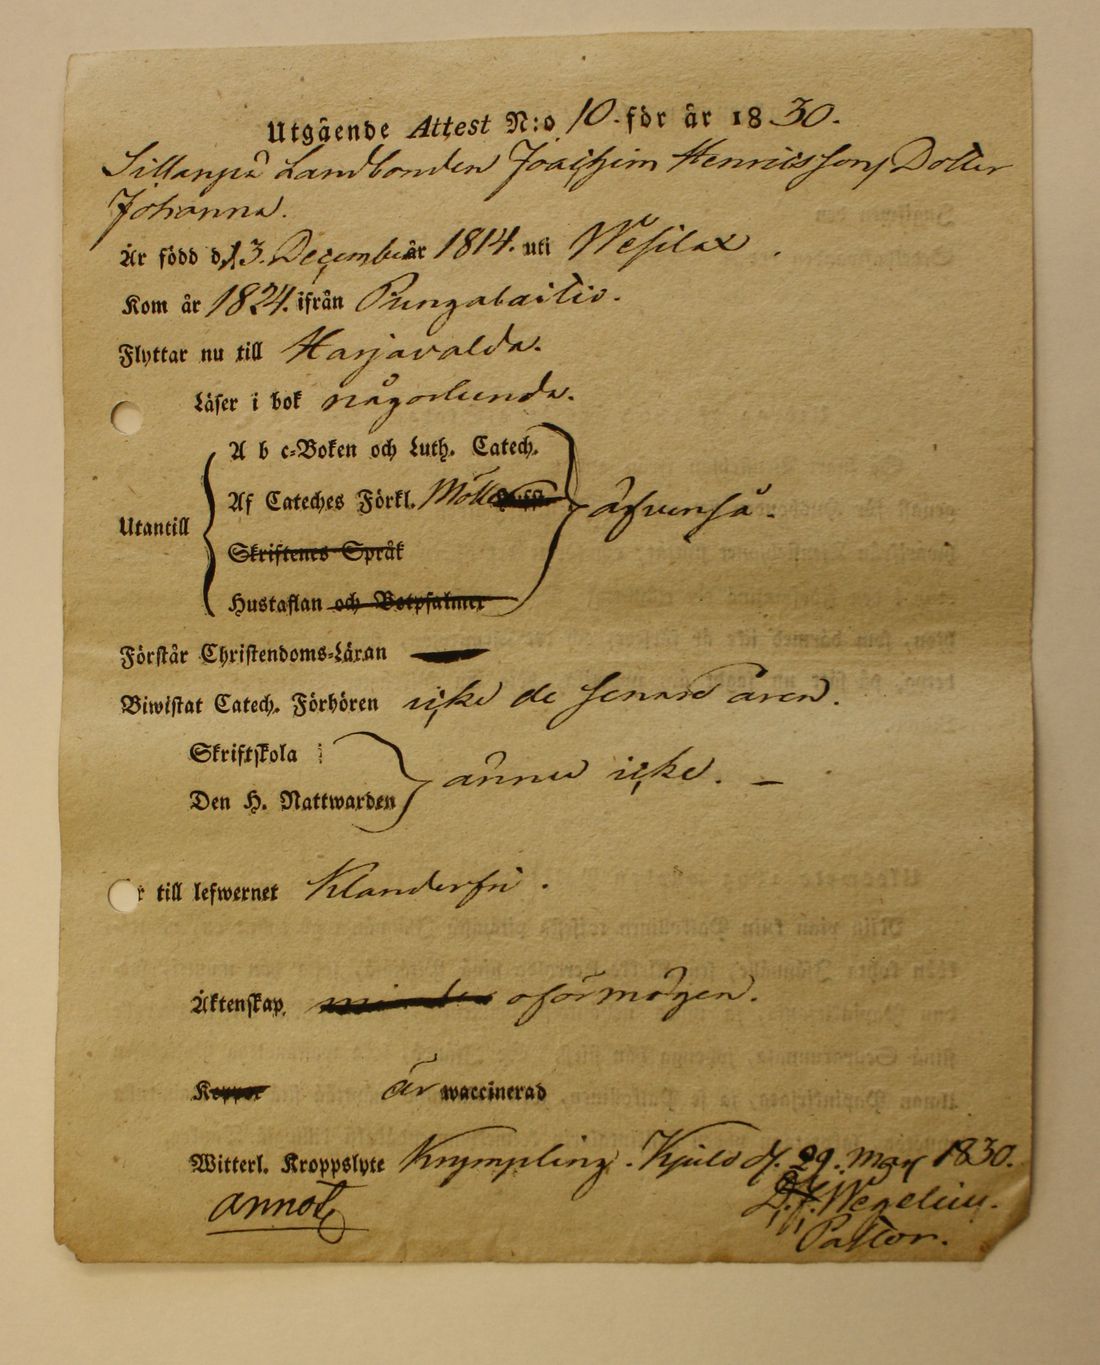 Utgående Attest N:o 10. för år 1830.
Sillanpää Landbonden Joachim Henricssons Dotter
Johanna.
Är född d. 13. December år 1814. uti Wesilax.
Kom år 1824. ifrån Pungalaitio.
Flyttar nu till Harjavalda.
Läser i bok någorlunda.
A b c-Boken och Luth. Catech.
Af Cateches Förkl.
Utantill äfvenså.
Skriftenes Språk
Hustaflan och Botpsalmer
Förstår Christendoms-Läran
Biwistat Catech. Förhören icke de senare åren.
Skriftskola
ännu icke. —
Den H. Nattwarden
r till lefwernet Klanderfri.
Äktenskap oförmögen.
Koppor är waccinerad
Witterl. Kroppslyte Krympling. Kjulo d. 29. May 1830.
annot. Wegelius.
Pastor.